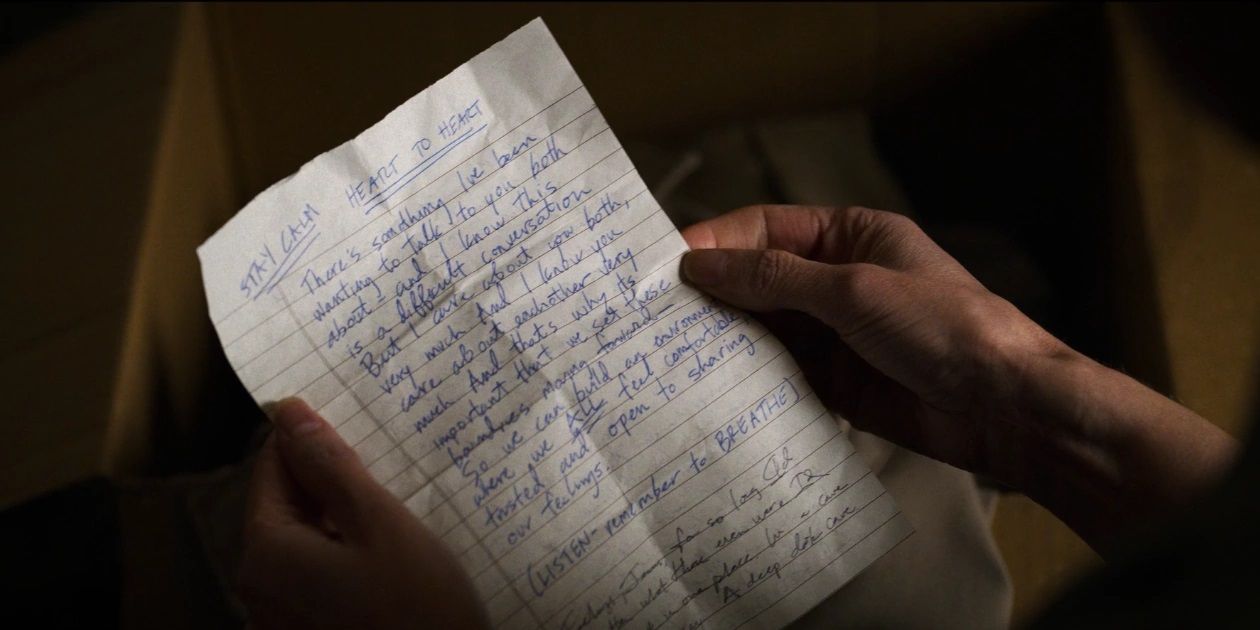 STAY CALM HEART TO HEART
There's something I've been
wanting to talk to you both
about - and I know this
is a difficult conversation
But I care about you both,
very much And I know you
care about eachother very
much And thats why its
important that we set these
boundries moving forward—
So we can build an environment
where we ALL feel comfortable
trusted and open to sharing
our feelings.
(LISTEN- remember to BREATHE)
for so long
what
in a cave.
A deep dark cave.